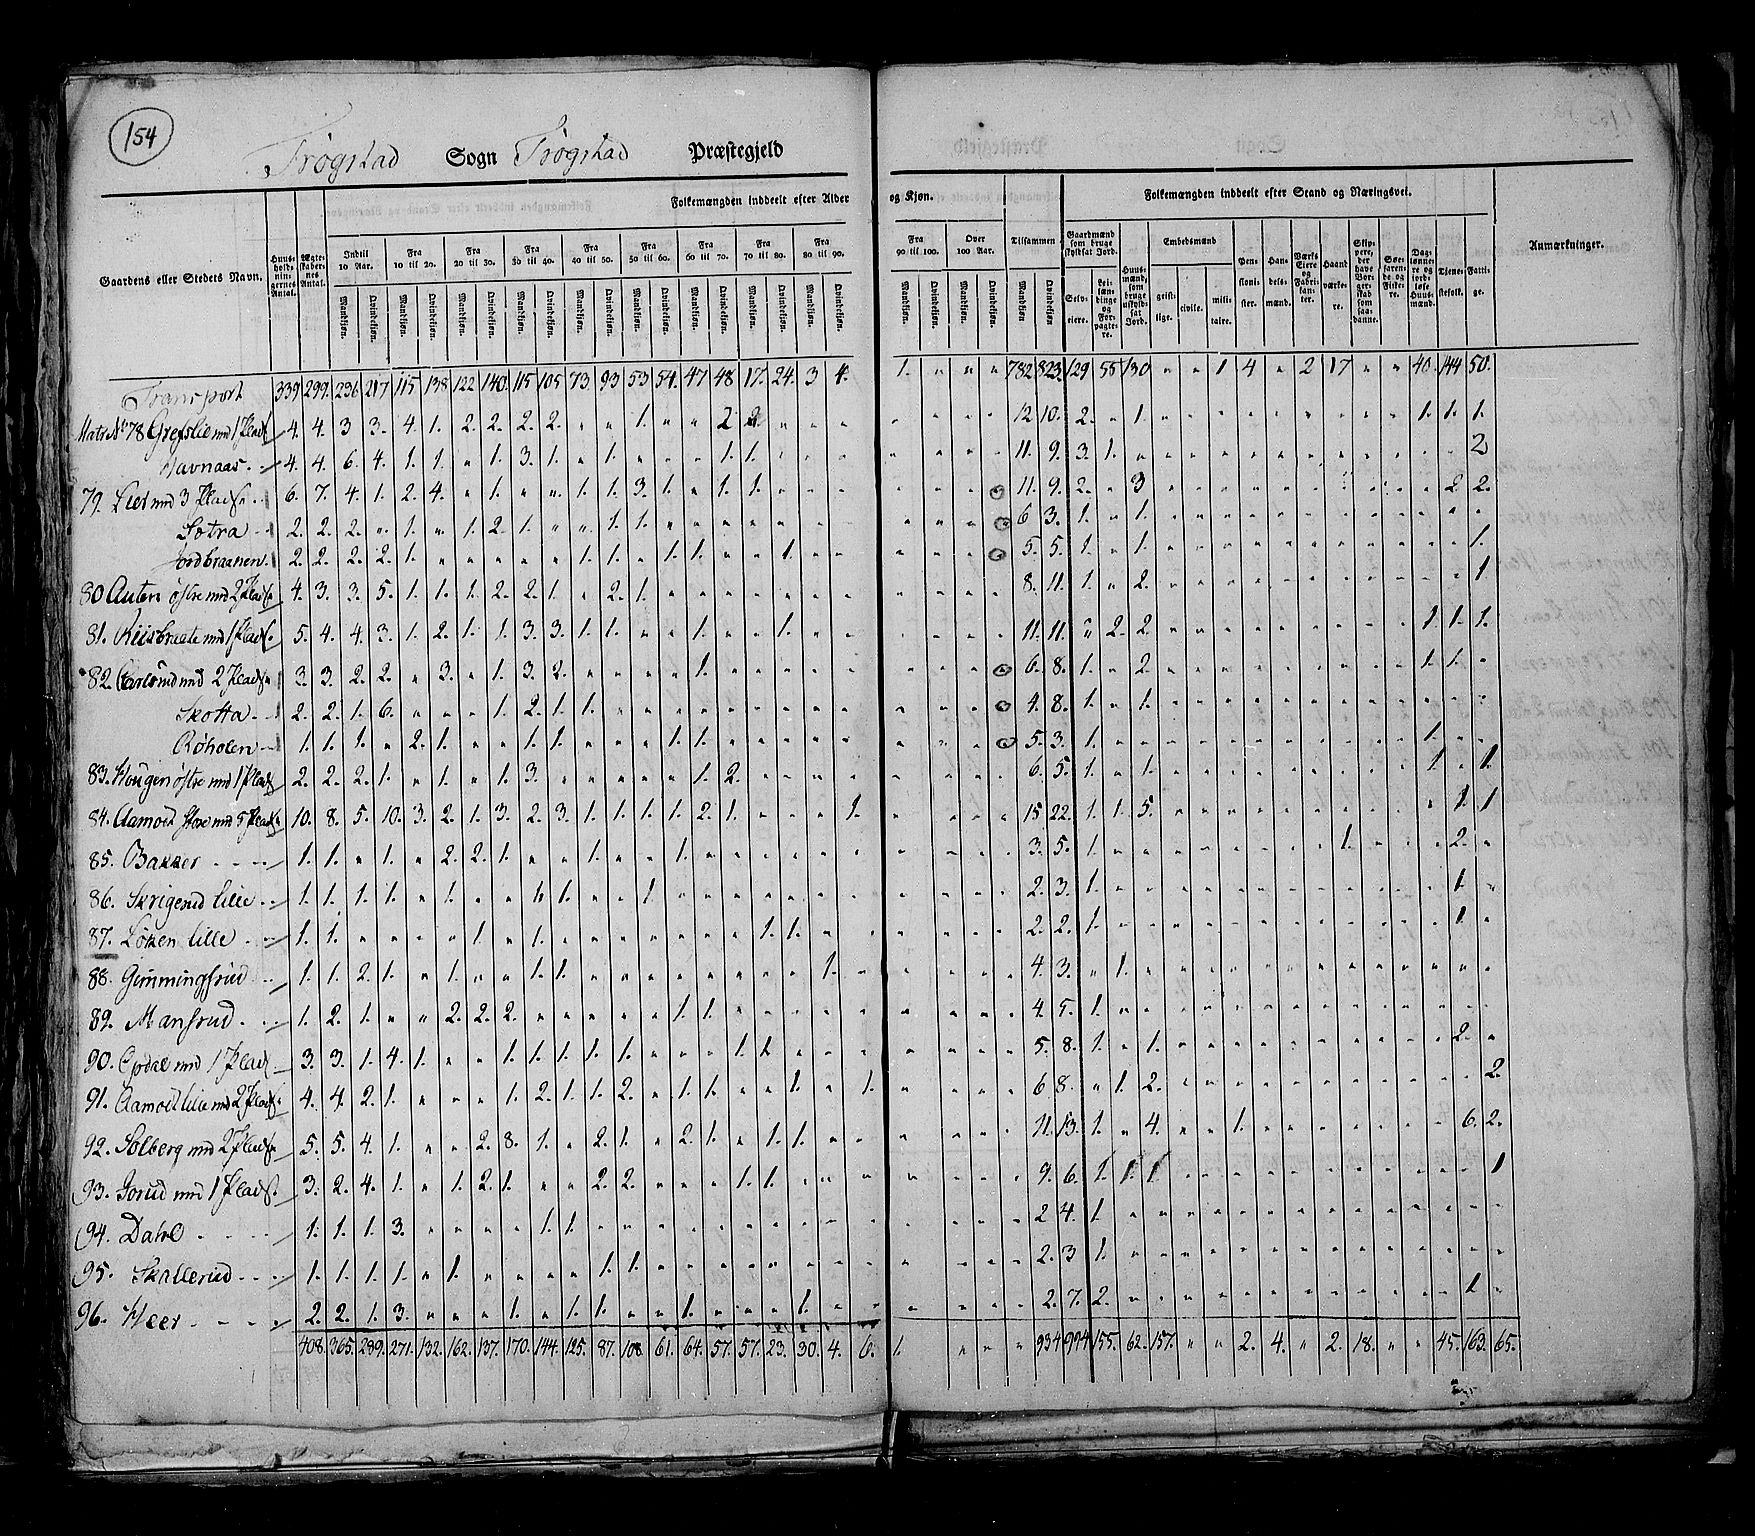 154
Trøgstad Sogn Trøgstad Præstegjeld
Folkemængden inddeelt efter Alder og Kjøn.
Folkemængden inddeelt efter Stand og Næringsvei.
Gaardens eller Stedets Navn.
Huusholdningernes Antal.
Ægteskabernes Antal.
Indtil 10 Aar. Fra 10 til 20. Fra 20 til 30. Fra 30 til 40. Fra 40 til 50. Fra 50 til 60. Fra 60 til 70. Fra 70 til 80. Fra 80 til 90. Fra 90 til 100. Over 100 Aar. Tilsammen
Mandkjøn. Qvindekjøn.
Gaardmænd som bruge skyldsat Jord. Selveiere. Leilændinge og Forpagtere.
Huusmænd, som bruge uskyldsat Jord.
Embedsmænd geistlige. civile. militaire.
Pensionister. Handelsmænd. Værkseiere og Fabrikanter. Haandværkere.
Daglønnere og jordeløse Huusmænd. Tjenestefolk. Fattige.
Anmærkninger.
Transport 339 299. 236 217 115 138 122 140. 115 105 73. 93 53 54. 47 48 17. 24. 3 4. 1. " " " 782 823. 129 55 130 " " 1 4 " 2 17 " " 40. 144 50.
Matr No 78 Grefslie md 1 Plads 4. 4. 3 3. 4. 1. 2. 2. 2. 2. " " 1. " " 2 2 12. 10. 2. " 1. 1. 1. 1.
Havnaas. 4. 4. 6. 4. 1. 1. " 1. 3. 1. " 1. " " " 1. 1. 11. 9. 3. 1. 2
79. Lier md 3 Pladse 6. 7. 4. 1. 2. 4. " 1. " " 1. 1. 3. 1. " 1. 1. 11. 9. 2. " 3 2 2.
Sotra 2. 2. 2. " 1. " 1. 2. 1. " " 1. 1. 6 3. 1. " 1.
Jordbraaten. 2. 2. 2. 2. 1. " " " " " 1. 1. " 1. 1. " " 1. 5. 5. 1. " 1. 1.
80 Auten østre md 2 Pladse 4. 3. 3. 5. 1. 1. 1. 2. 2. 1. " 2. 1. 8. 11. 1. " 2. 1
81. Riisbraate md 1 Plads. 5. 4. 4. 3. 1. 2. 1. 1. 3. 3. 1. 1. " " 1. " " 1. 11. 11. " 2. 2. 1. 1. 1.
82. md 2 Pladse 3. 3. 2. 2. " 3. " 1. 3. 2. " " " " 1. 6. 8. 1. " 2. 1. 1.
Skotta 2. 2. 1. 6. " " " 1. 2. 1. 1. 4. 8. 1. " 1.
Røholen 1. 1. 1. " 2. 1. " " 1. 1. " " " 1. 1. 5. 3. 1. 1.
83. Hougen østre md 1 Plads 2. 2. 2. 1. " 1. " 1. 3. " " " " " 1. 2. 6. 5. 1. " 1. 1. " 1.
84. Aamodt store md 5 Pladse 10. 8. 5. 10. 3. 2. 1. 3. 2. 3. 1. 1. 1. 1. 2. 1. " " " 1. 15 22. 1. 1. 5. 1. 1
85. Bakker 1. 1. " 1. " 2. 2. 1. " " 1. " " 1. 3. 5. 1. 1. 2.
86. Skrigerud lille 1. 1. 1. 1. " 1. " " 1. 1. " " 1. 2. 3. 1. 1.
87. Løken lille 1. 1. " " " " 1. " 1. 1. 1. 2. 2. 1. 1.
88. Gimmingsrud 1. 1. 2. 1. " 1. " " 1. 1. 1. 4. 3. " 1.
89. Mansrud. 1. 2. 1. " " 2. 2. 2. " " " " " 1. 1. 4. 5. 1.
90. Opdal md 1 Plads 3. 3. 1. 4. 1. " " 1. 1. 1. 1. 1. " " " 1. 1. 5. 8. 1. " 1. 2.
91. Aamodt lille md 2 Pladse 4. 4. 2. 1. " " " 1. 2. 1. 1. 2. " 1. 1. " " 1. " 1. 6 8. " 1. 2. 2.
92. Solberg md 2 Pladse 5. 5. 4. 1. " " 2. 8. 1. " 2. 1. " 2. 1. " 1. 1. 11. 13. 1. " 4. " " 1. 6. 2.
93. Jorud md 1 Plads. 3. 2. 4. 1. " 1. 2. 1. " " 2. 2. " " " 1. 1. 9. 6. 1. 1. 1 1
94. Dahl 1. 1. 1. 3. " " " " 1. 1. 2 4. 1.
95. Skallerud 1. 1. 1. 1. " 1. " " " " 1. 1. 2. 3 1.
96. Heer 2. 2. 1. 3. " " " 1. " 1. 1. " " 1. " " " 1. 2. 7. 2. 1.
408. 365. 289. 271. 132. 162. 137. 170. 144. 125. 87. 108. 61. 64. 57. 57. 23. 30. 4. 6. 1. " " " 934 994 155. 62. 157. " " 2. 4. " 2. 18. " " 45. 163. 65.